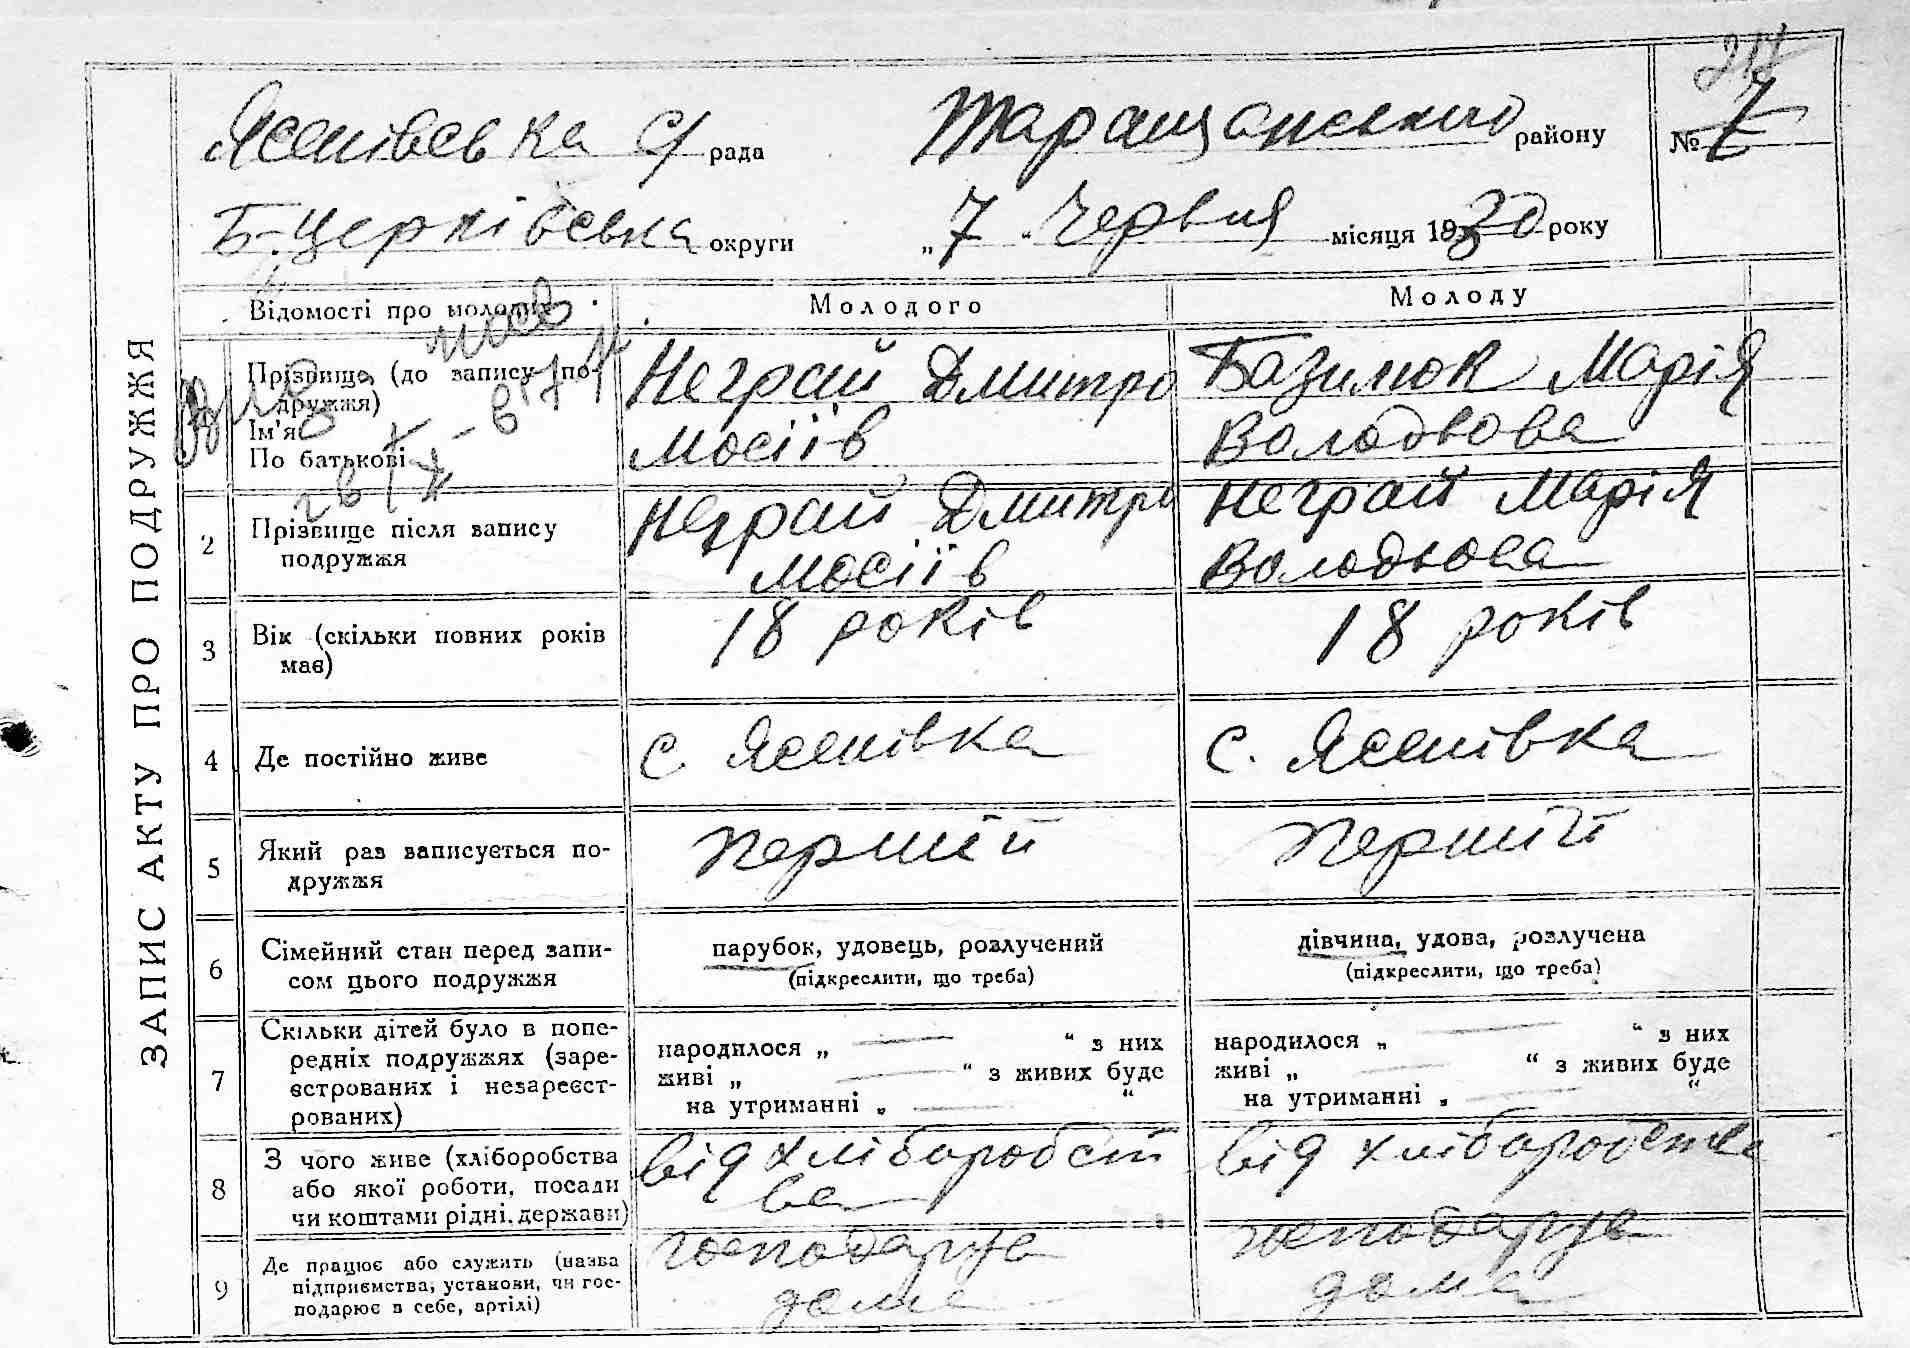 ЗАПИС АКТУ ПРО ПОДРУЖЖЯ
Ясенівська с/рада Таращанського району № 7
Б-Церківська округи „7“ Червня місяця 1930 року
Відомості про молодих Молодого Молоду
Прізвище (до запису по- Неграй Дмитро Базилюк Марія
дружжя)
Ім'я Мосіїв Володьова
По батькові
2 Прізвище після запису Неграй Дмитро Неграй Марія
подружжя Мосіїв Володьова
3 Вік (скільки повних років 18 років 18 років
має)
4 Де постійно живе с. Ясенівка с. Ясенівка
5 Який раз записується по- Перший Перший
дружжя
6 Сімейний стан перед запи- парубок, удовець, розлучений дівчина, удова, розлучена
сом цього подружжя (підкреслити, що треба) (підкреслити, що треба)
7 Скільки дітей було в попе- народилося „ — “ з них народилося „ — “ з них
редніх подружжях (заре- живі „ — “ з живих буде живі „ — “ з живих буде
єстрованих і незареєст- на утриманні „ — “ на утриманні „ — “
рованих)
8 З чого живе (хліборобства від хліборобст від хліборобства
або якої роботи, посади ва
чи коштами рідні, держави)
9 Де працює або служить (назва господарює господарює
підприємства, установи, чи гос- дома дома
подарює в себе, артілі)